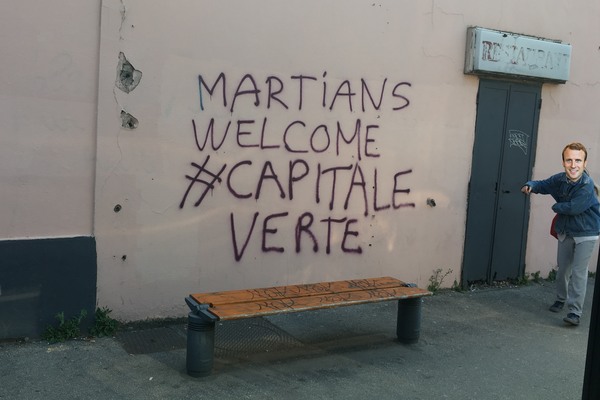 MARTiANS
WELCOME
#CAPITALE
VERTE
RESTAURANT